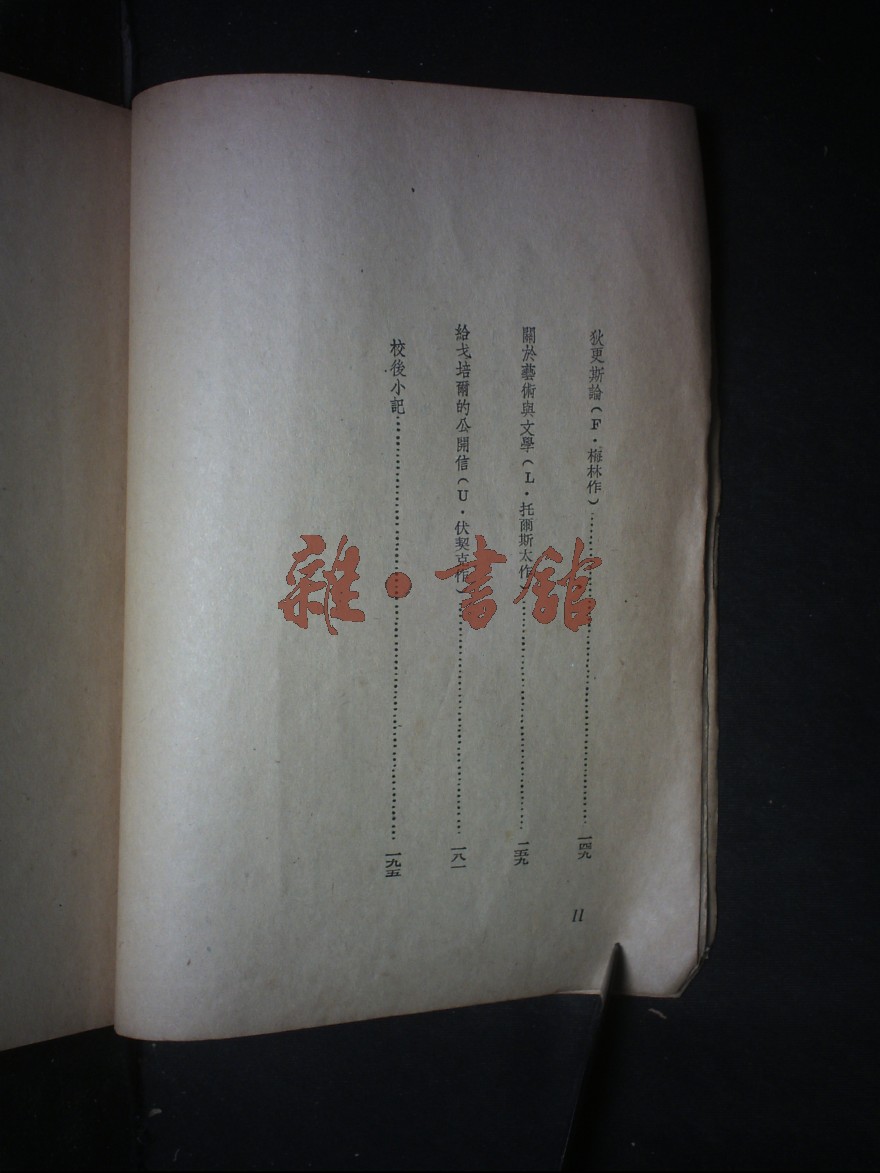 狄更斯論(F·梅林作)……一四九
關於藝術與文學(L·托爾斯太作)……一五九
給戈培爾的公開信(U·伏契克作)……一八一
校後小記……一九五
11
雜·書館